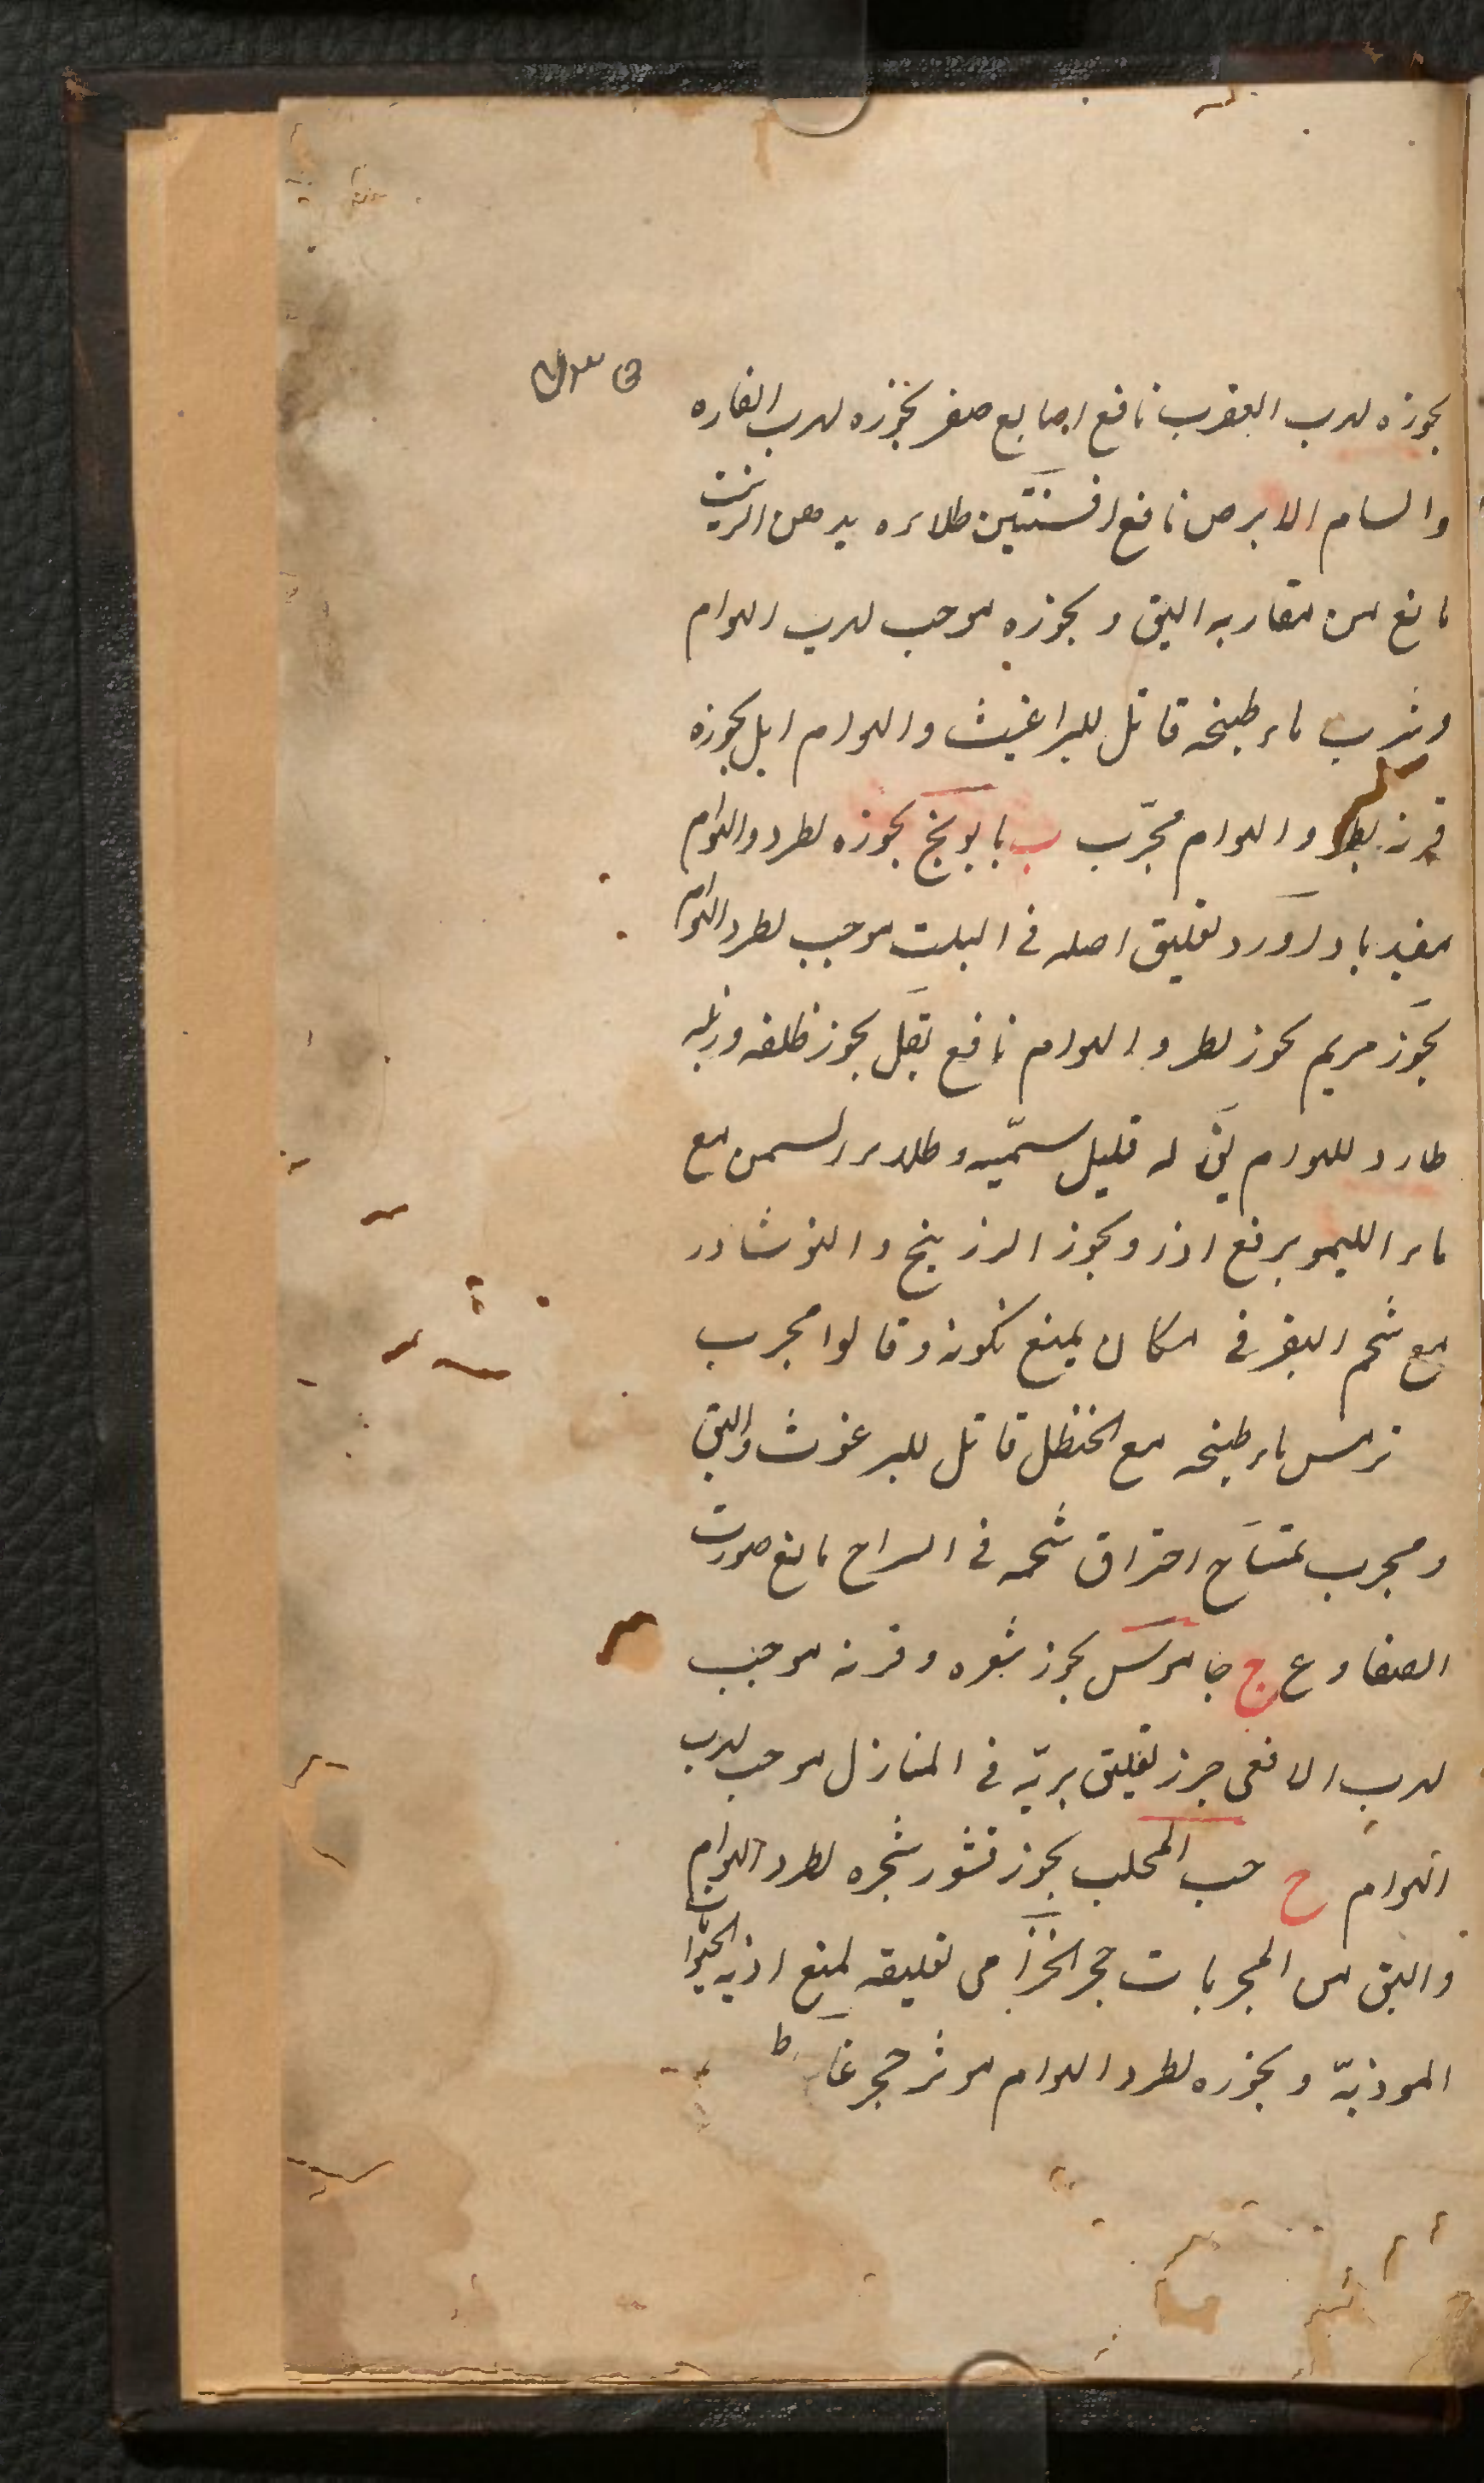 بخوره لهرب العقرب نافع اصابع صفر بخوره لهرب الفاره
والسام الابرص نافع افسنتين طلاءه بدهن الزيت
مانع من مقاربه البق وبخوره موجب لهرب الهوام
وشرب ماء طبيخه قاتل للبراغيث والهوام ابل بخوره
قرنه لطرد الهوام مجرّب ب بابونج بخوره لطرد الهوام
مفيد باداورد تعليق اصله فى البيت موجب لطرد الهوام
بخور مريم بخور لطرد الهوام نافع بغل بخور ظلفه وزبله
طارد للهوام بقّ له قليل سمّيه وطلاء السمن مع
ماء الليمو يرفع اذ وبخور الزرنيخ والنوشادر
مع شحم البقر فى مكان يمنع تكونه وقالوا مجرب
ترمس ماء طبيخه مع الحنظل قاتل للبرغوث والبق
ومجرب تمساح احتراق شحمه فى السراج مانع صوت
الضفادع ج جاموس بخور شعره وقرنه موجب
لهرب الافعى جزر تعليق بريّه فى المنازل موجب لهرب
الهوام ح حب المحلب بخور قشور شجره لطرد الهوام
والبق من المجربات حجر الخزامى تعليقه لمنع اذيه الحيوانات
الموذيّه وبخوره لطرد الهوام موثر حجر